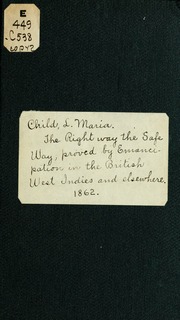 E
449
.C538
COPY 2
Child, L. Maria.
The Right way the Safe
Way, proved by Emanci-
pation in the British
West Indies and elsewhere.
1862.